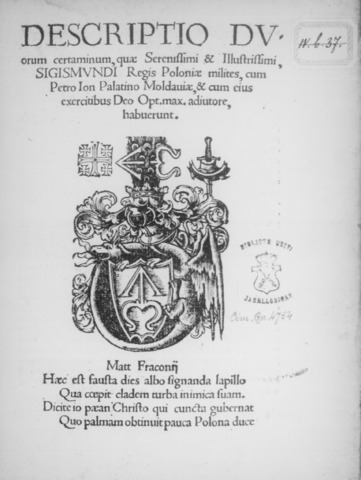 DESCRIPTIO DV-
orum certaminum, quæ Serenissimi & Illustrissimi,
SIGISMVNDI Regis Poloniæ milites, cum
Petro Ion Palatino Moldauiæ, & cum eius
exercitibus Deo Opt. max. adiutore,
habuerunt.
IV. b. 37.
BIBLIOTH. UNIV.
JAGELLONICAE
Matt Fraconij
Hæc est fausta dies albo signanda lapillo
Qua cœpit cladem turba inimica suam.
Dicite io pæan Christo qui cuncta gubernat
Quo palmam obtinuit pauca Polona duce